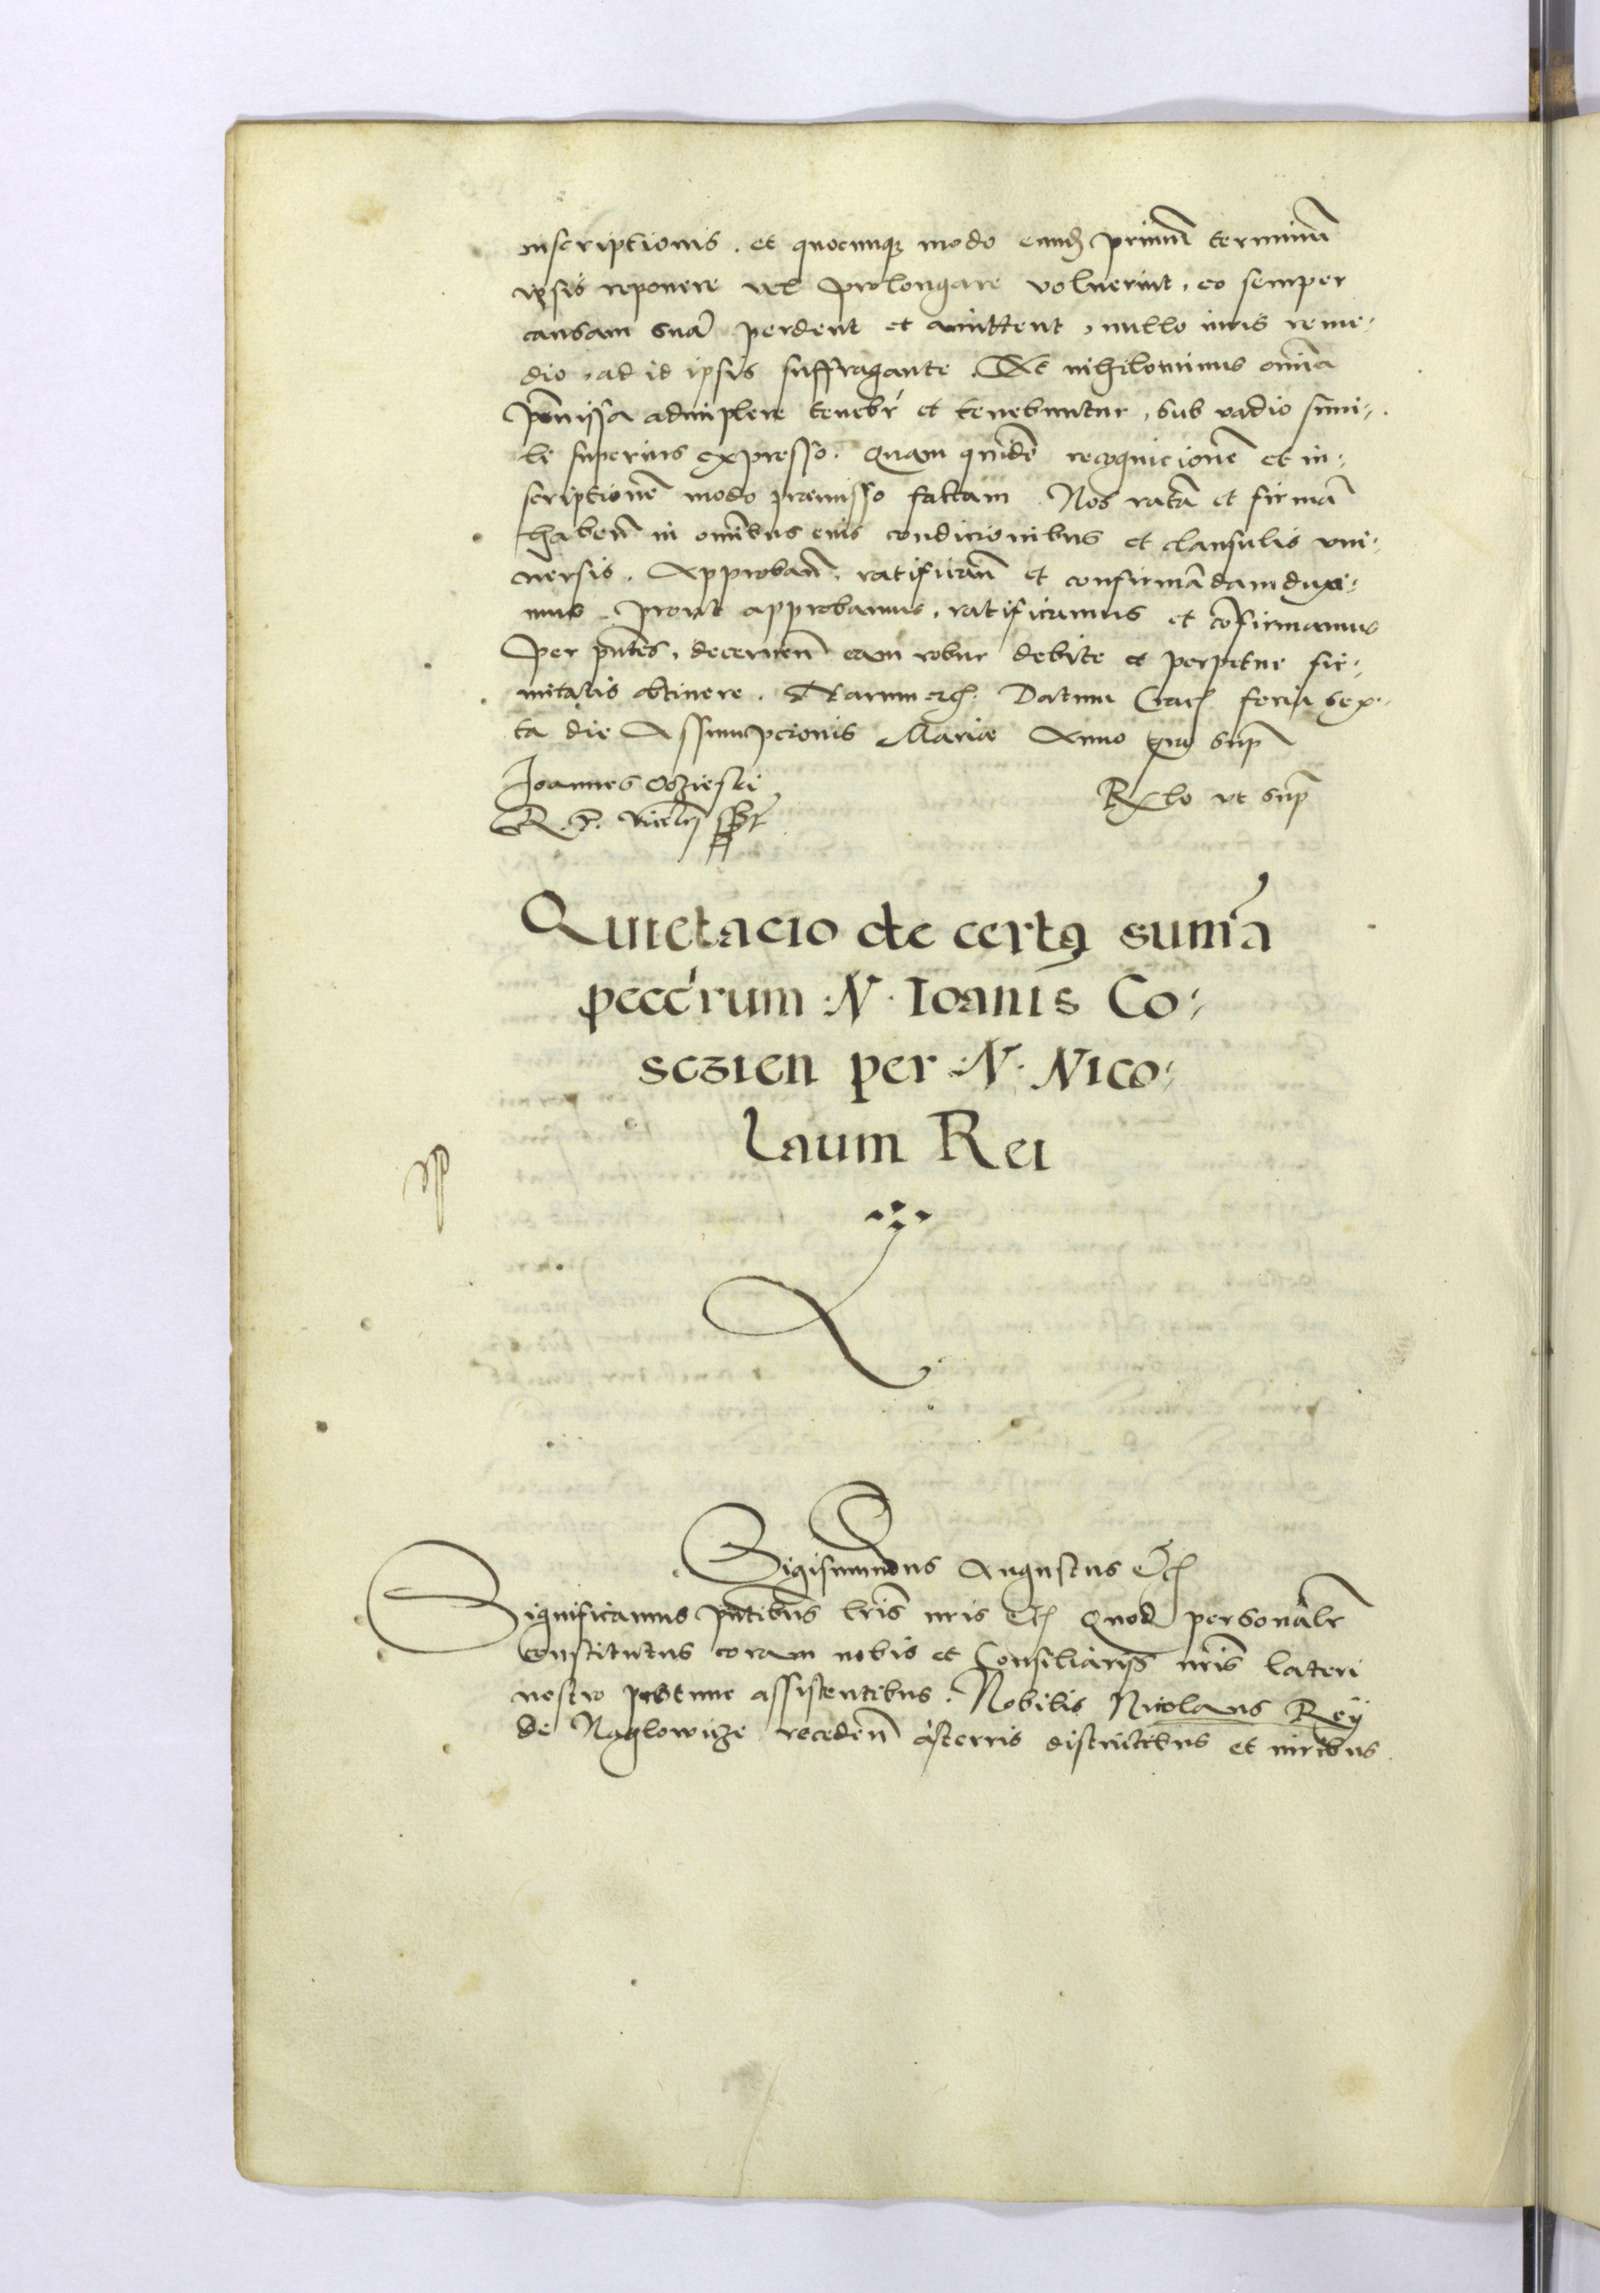 inscriptionis . et quocunqꝫ modo eundē primū terminū
ipsis reponere vel prolongare voluerint, eo semper
causam suā perdent et amittent, nullo iuris reme-
dio, ad id ipsis suffragante . Et nihilominus oīnia
pmissa adimplere tenebr̄ et tenebuntur, sub vadio simi-
le superius expresso . Quam quidē recognicionē et in-
scriptionē modo premisso factam Nos ratā et firmā
haben̄ in om̄ibus eius condicionibus et clausulis vni-
uersis . Approban̄ . ratifican̄ et confirmādam duxi-
mus . prout approbamus, ratificamus et cōfirmamus
Per pntes, decernen̄ eam robur debite et perpetue fir-
mitatis obtinere . Harum etc. Datum Crac. feria sex-
ta die Assumpcionis Mariæ Anno quo sup̄
Ioannes Oczieski
R. P. Vicecan̄ sst
Rxlo vt sup̄
Quietacio de certa sum̄a
peccr̄um .N. Ioan̄is Co-
sczien per .N. Nico-
laum Rei
Sigismundus Augustus Etc
Significamus pn̄tibus lr̄is nr̄is Etc Quod personalr̄
constitutus coram nobis et Consiliariis nr̄is lateri
nostro pro tunc assistentibus . Nobilis Nicolaus Reÿ
de Naglowicze receden̄ a terris districtibus et iurībus